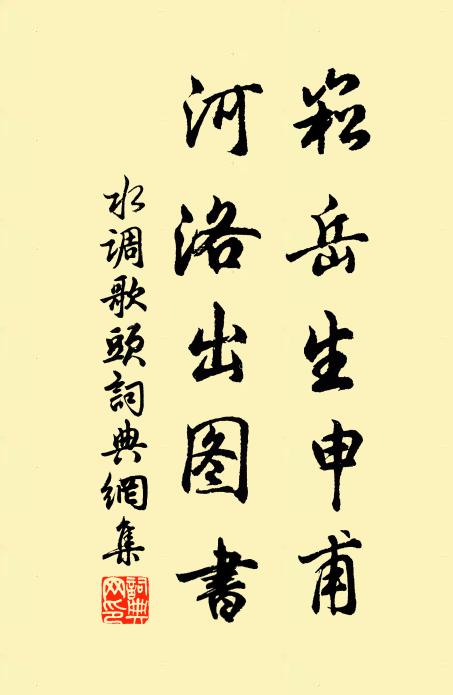 崧岳生申甫
河洛出图書
水调歌頭詞典網集
詞典
网印